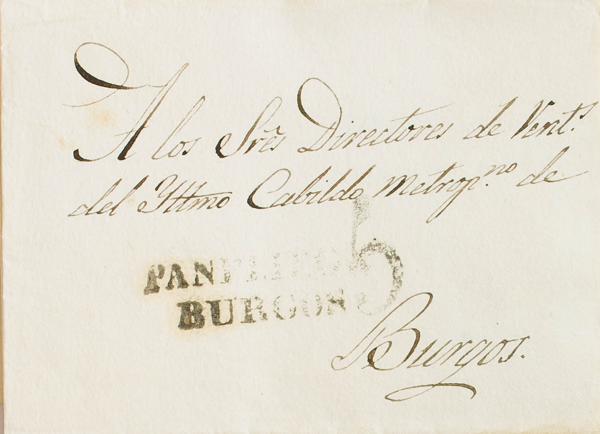 A los Sres Directores de Vents
del Yttmo Cabildo metropno de
5
BURGOS
Burgos.